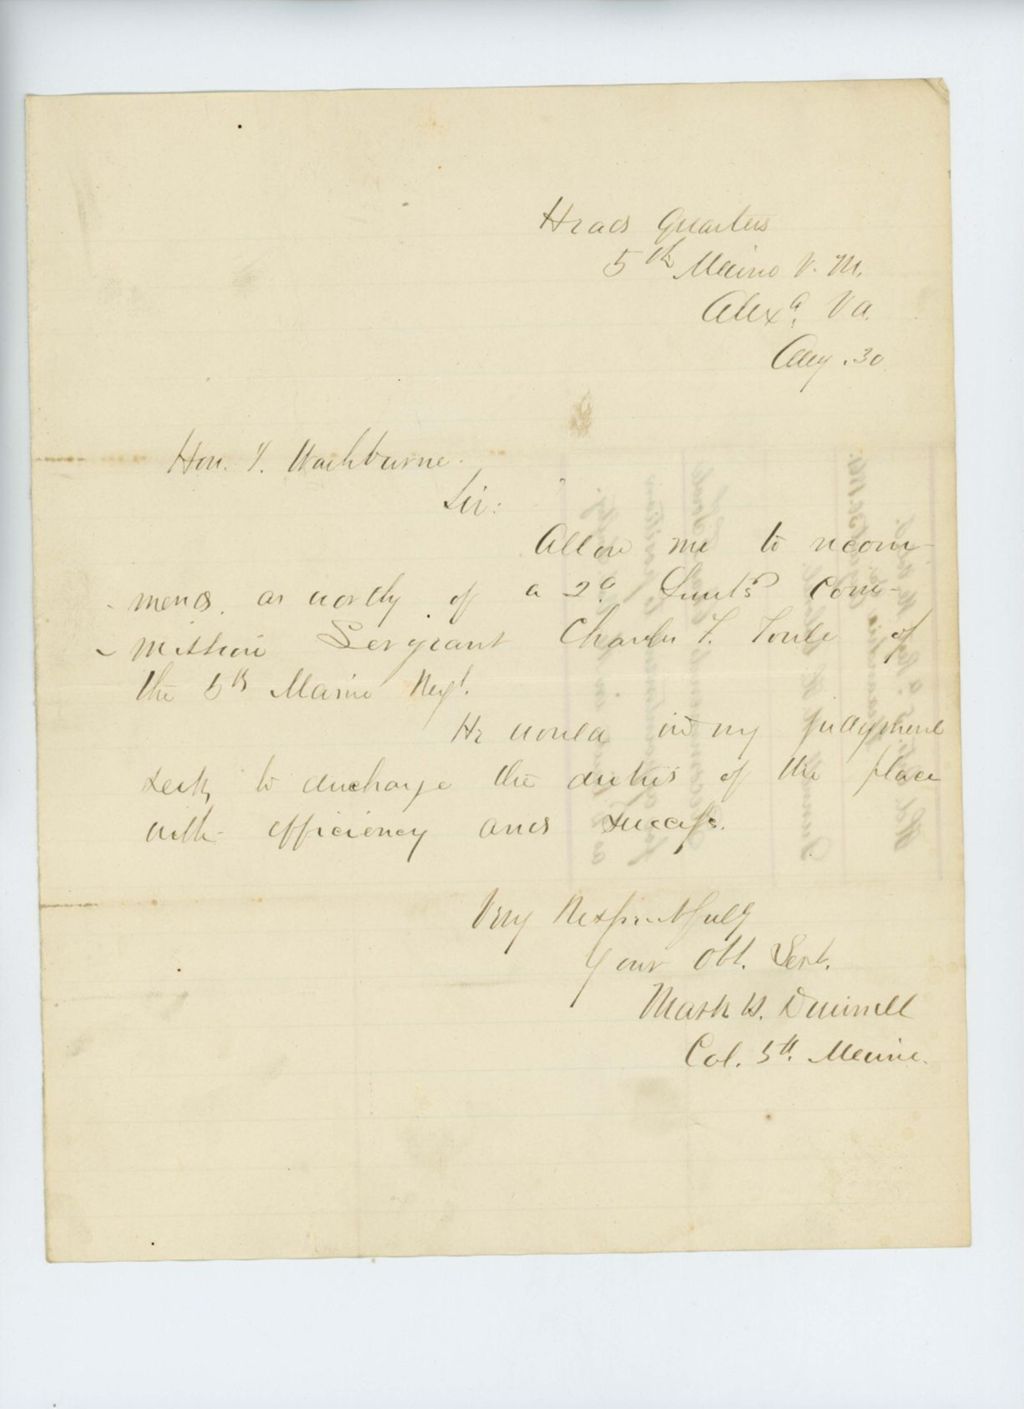 Head Quarters
5th Maine V. M.
Alexa, Va.
Aug. 30
Hon. I. Washburne.
Sir:
Allow me to recom-
-mend, as worthy of a 2d Lieuts com-
-mission Sergeant Charles F.      of
the 5th Maine Regt.
He would in my judgement
seek to discharge the duties of the place
with efficiency and success.
Very Respectfully
Your Obt. Servt.
Mark H. Dunnell
Col. 5th. Maine.